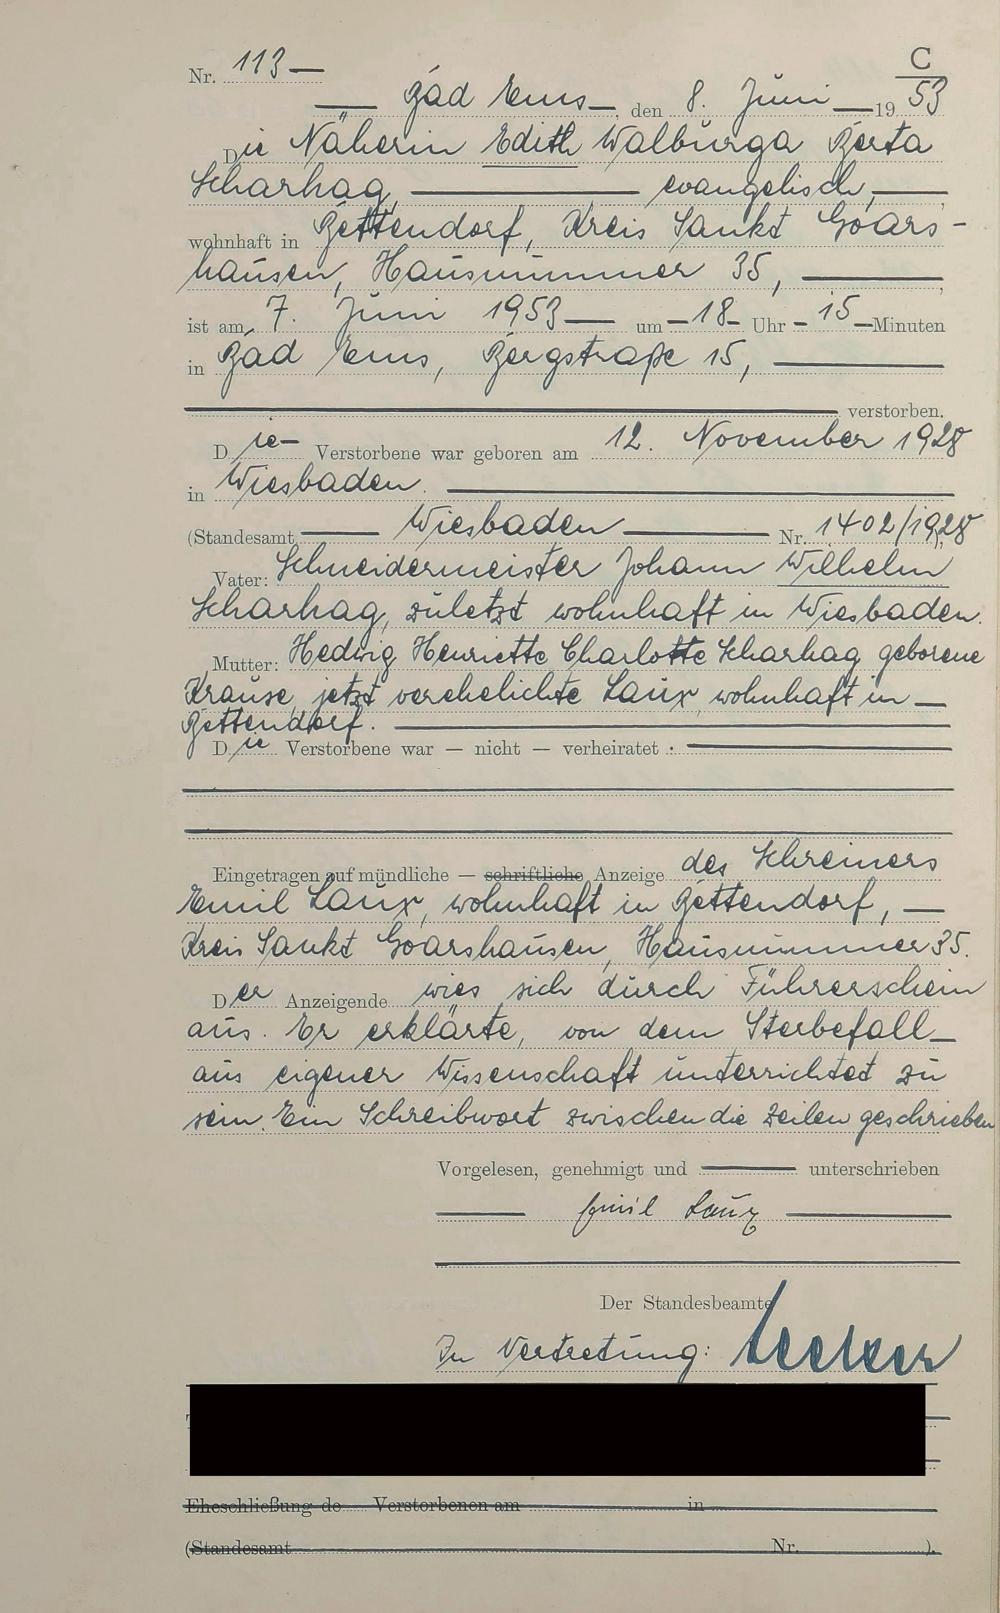 C
Nr. 113
Bad Ems, den 8. Juni 1953
Die Näherin Edith Walburga Berta
Scharhag, evangelisch,
wohnhaft in Bettendorf, Kreis Sankt Goars-
hausen, Hausnummer 35,
ist am 7. Juni 1953 um 18 Uhr 15 Minuten
in Bad Ems, Bergstraße 15,
verstorben.
Die Verstorbene war geboren am 12. November 1928
in Wiesbaden.
(Standesamt Wiesbaden Nr. 1402/1928
Vater: Schneidermeister Johann Wilhelm
Scharhag, zuletzt wohnhaft in Wiesbaden.
Mutter: Hedwig Henriette Charlotte Scharhag geborene
Krause, jetzt verehelichte Laux, wohnhaft in
Bettendorf.
Die Verstorbene war — nicht — verheiratet.
Eingetragen auf mündliche — schriftliche Anzeige des Schreiners
Emil Laux, wohnhaft in Bettendorf,
Kreis Sankt Goarshausen, Hausnummer 35.
Der Anzeigende wies sich durch Führerschein
aus. Er erklärte, von dem Sterbefall
aus eigener Wissenschaft unterrichtet zu
sein. Ein Schreibwort zwischen die Zeilen geschrieben
Vorgelesen, genehmigt und unterschrieben
Emil Laux
Der Standesbeamte
In Vertretung:
Eheschließung de Verstorbenen am in
(Standesamt Nr. ).